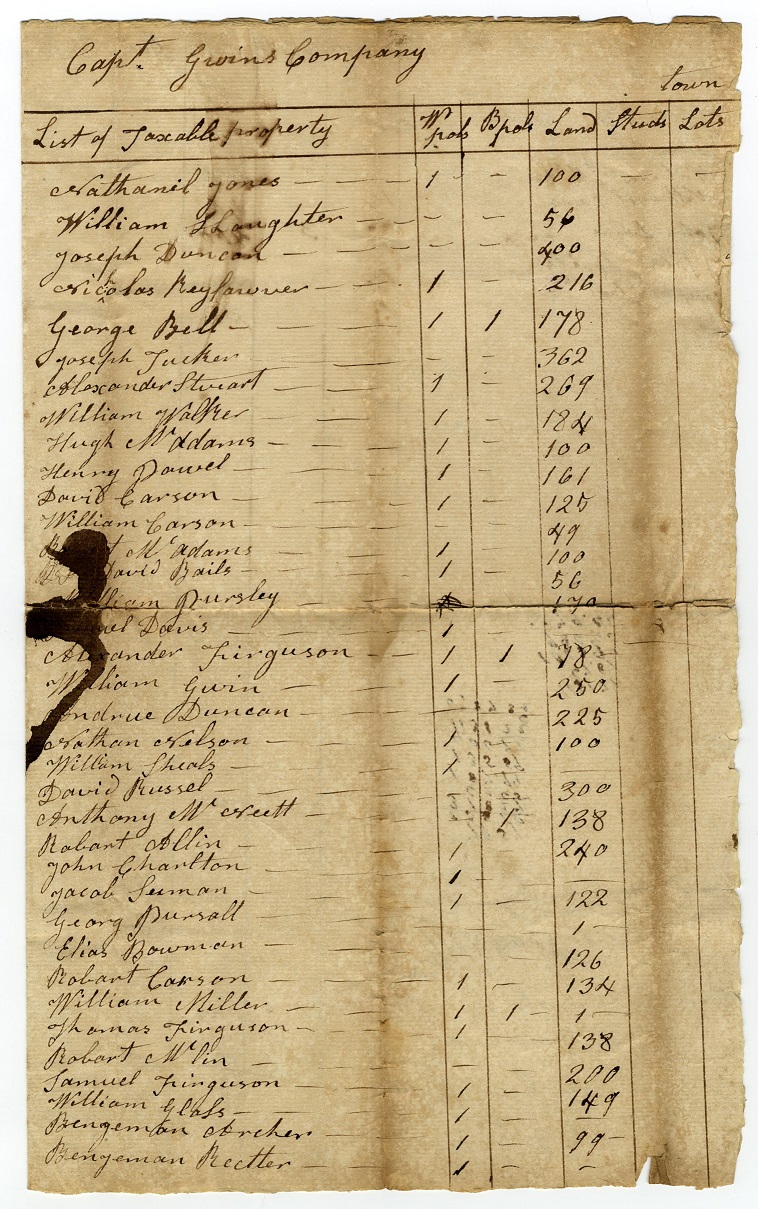 Capt. Gwins Company
town
List of Taxable property Wpols Bpols Land Studs Lots
Nathanil Jones — — — 1 - 100 — —
William Slaughter — — - - 56
Joseph Duncan — — - - 400
Nicolas Keyfawver — — 1 - 216
George Bell — — — 1 1 178
Joseph Tucker — — — - - 362
Alexander Stuart — — — 1 - 269
William Walker — — 1 - 184
Hugh McAdams — — — 1 - 100
Henry Dowel — — 1 - 161
David Carson — — — 1 - 125
William Carson — — - - 49
McAdams — — 1 - 100
David Bails — — 1 - 56
William Pursley — — - 170
Davis — — 1 -
Alexander Firguson — — 1 1 78
William Gwin — — 1 - 250
Andrue Duncan — — - 225
Nathan Nelson — — — 1 100
William Sheals — — 1
David Russel — — — 300
Anthony McNeett — — 1 138
Robart Allin — — 1 - 240
John Charlton — — 1 - —
Jacob Seeman — — 1 - 122
Georg Pursall — — - - 1 -
Elias Bowman — — - - 126
Robart Carson — — 1 - 134
William Miller — — 1 1 1 -
Thomas Firguson — — 1 - 138
Robart McLin — — - - 200
Samuel Firguson — — 1 - 149
William Glass — — 1 -
Bengeman Archer — — 1 - 99 -
Bengeman Rectler — — 1 - -